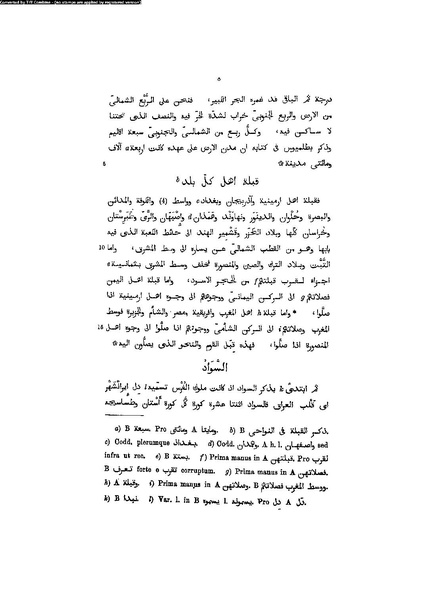 Converted by Tiff Combine - (no stamps are applied by registered version)
٥
درجة ثم الباقى قد غمره البحر الكبير، فنحن على الرُّبْع الشمالىّ
من الارض والربع الجنوبىّ خراب لشدّة الحرّ فيه والنصف الذى تحتنا
لا ساكن فيه، وكلّ ربع من الشمالىّ والجنوبىّ سبعة اقاليم
وذكر بطلميوس فى كتابه ان مدن الارض على عهده كانت اربعة آلاف
ومائتى مدينة 5
قبلة اهل كلّ بلد
فقبلة اهل ارمينية وآذربيجان وبغداد وواسط (4) والكوفة والمدائن
والبصرة وحُلْوان والدينور ونهاوند وهَمَذان واصبَهان والرىّ وطَبَرِسْتان
وخراسان كلّها وبلاد الخَزَر وقَشْمير الهند الى حائط الكعبة الذى فيه
بابها وهو من القطب الشمالىّ عن يساره الى وسط المشرق، واما 10
التُّبَّت وبلاد الترك والصين والمنصورة فخلف وسط المشرق بثمانية
اجزاء لقرب قبلتهم من الحجر الاسود، واما قبلة اهل اليمن
فصلاتهم الى الركن اليمانىّ ووجوههم الى وجوه اهل ارمينية اذا
صلّوا، واما قبلة اهل المغرب وافريقية ومصر والشأم والجزيرة فوسط
المغرب وصلاتهم الى الركن الشأمىّ ووجوههم اذا صلّوا الى وجوه اهل 15
المنصورة اذا صلّوا، فهذه قِبَل القوم والنحو الذى يصلّون اليه
السَّوَاد
ثم ابتدئ بذكر السواد اذ كانت ملوك الفُرْس تسمّيه دِل ايرانْشَهْر
اى قلب العراق فالسواد اثنتا عشرة كورة كلّ كورة أستان وطساسيجه
a) B سبعة. Pro ومائتى A ومايتا. b) B ذكر القبلة فى النواحى.
c) Codd. plerumque بغداذ. d) Codd. وهمدان. A h. l. واصفهان sed
infra ut rec. e) B بستة. f) Prima manus in A قبلتهن. Pro لقرب
B تعرف forte e نقرب corruptum. g) Prima manus in A فصلاتهن.
h) A وقبلة. i) Prima manus in A وصلاتهن. B ووسط المغرب فصلاتهم.
k) B نبدا. l) Var. l. in B يسموه l. يسمونه. Pro دل A دّل.